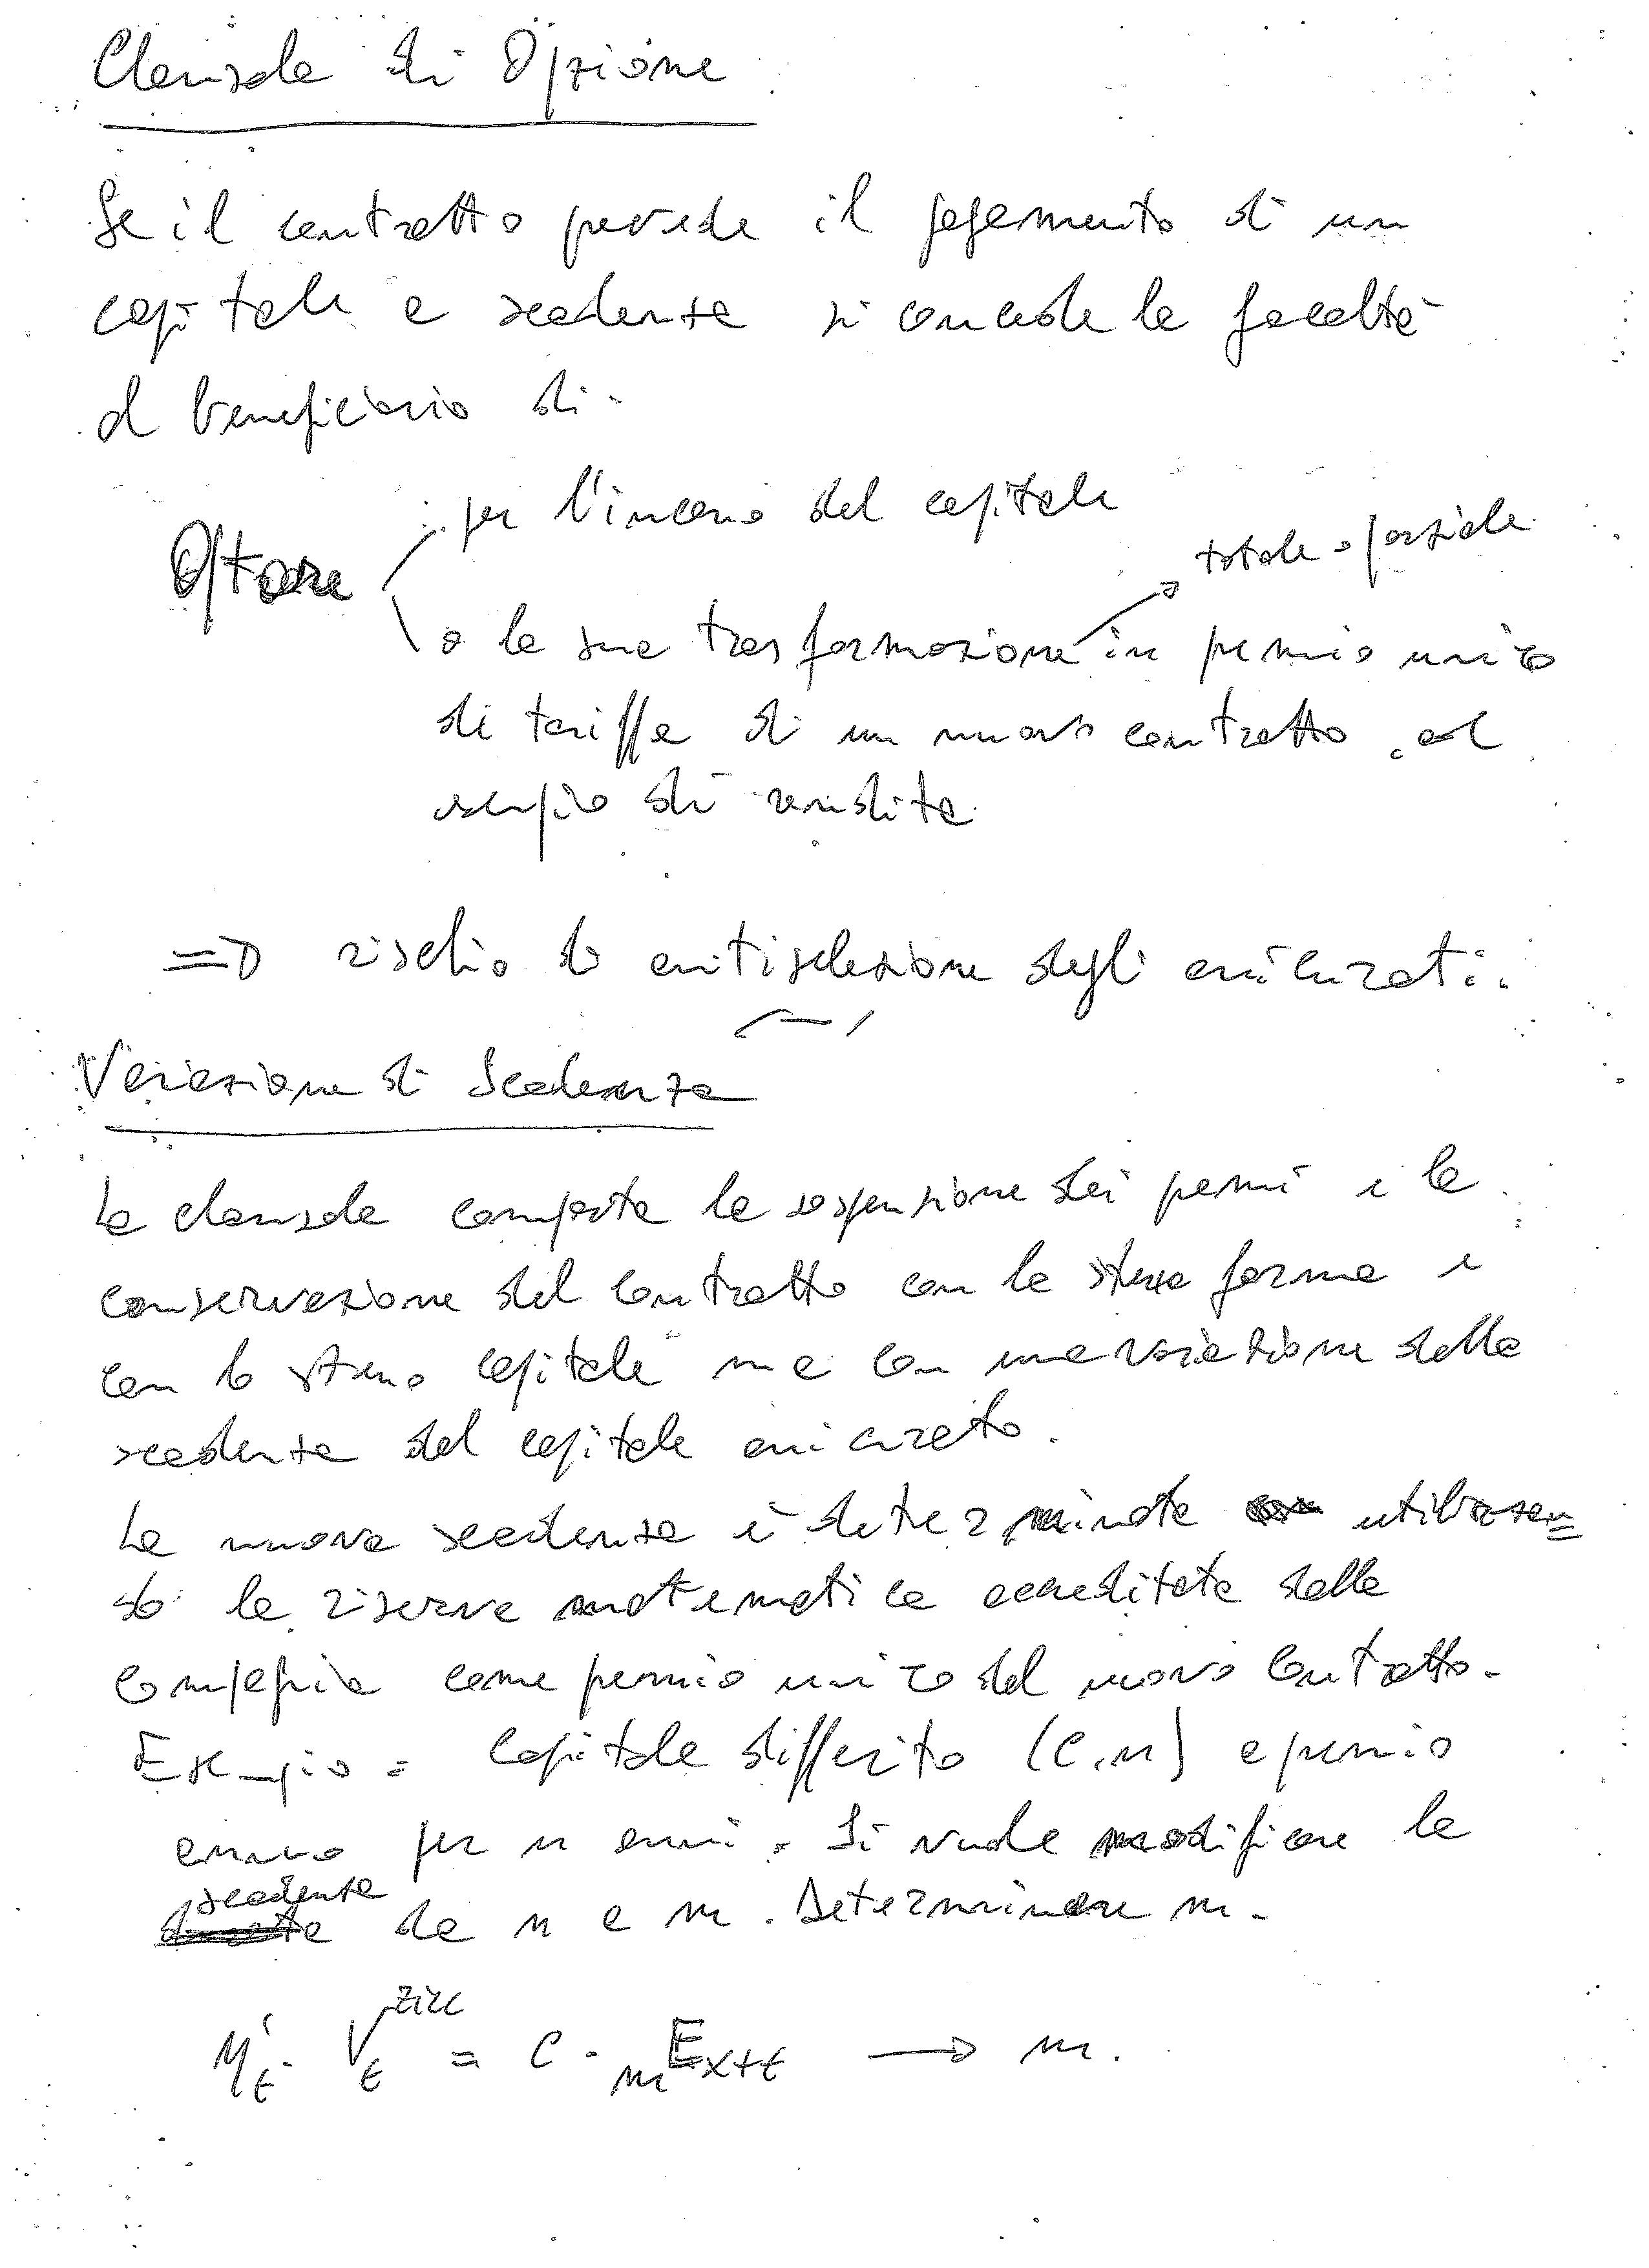 Clausola di Opzione
Se il contratto prevede il pagamento di un
capitale a scadenza si concede la facoltà
al beneficiario di
Optare
per l'incasso del capitale
totale o parziale
o la sua trasformazione in premio unico
di tariffa di un nuovo contratto, ad
esempio di rendita.
=> rischio di antiselezione degli assicurati.
Variazione di Scadenza
La clausola comporta la sospensione dei premi e la
conservazione del contratto con la stessa forma e
con lo stesso capitale ma con una variazione della
scadenza del capitale assicurato.
La nuova scadenza è determinata utilizzan=
do la riserva matematica accreditata dalla
compagnia come premio unico del nuovo contratto.
Esempio = Capitale differito (C,n) a premio
annuo per n anni. Si vuole modificare la
scadenza
da n a m. Determinare m.
η'_t · V_t^{zill} = C · _mE_{x+t} → m.